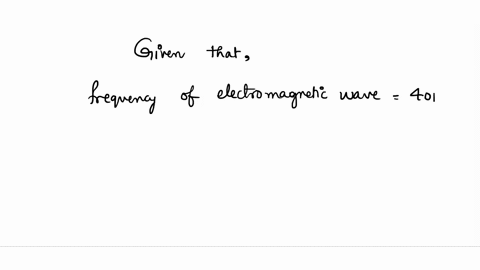 Given that,
frequency of electromagnetic wave = 401